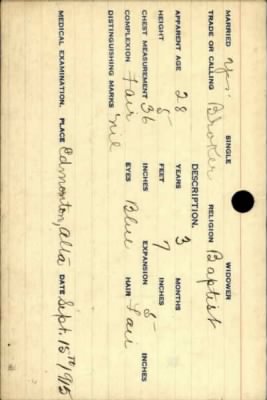 MARRIED Yes. SINGLE WIDOWER
TRADE OR CALLING Broker RELIGION Baptist
DESCRIPTION.
APPARENT AGE 28 YEARS 3 MONTHS
HEIGHT 5 FEET 7 INCHES
CHEST MEASUREMENT 36 INCHES EXPANSION 5 INCHES
COMPLEXION Fair EYES Blue HAIR Fair
DISTINGUISHING MARKS nil
MEDICAL EXAMINATION. PLACE Edmonton, Alta DATE Sept. 15TH 1915